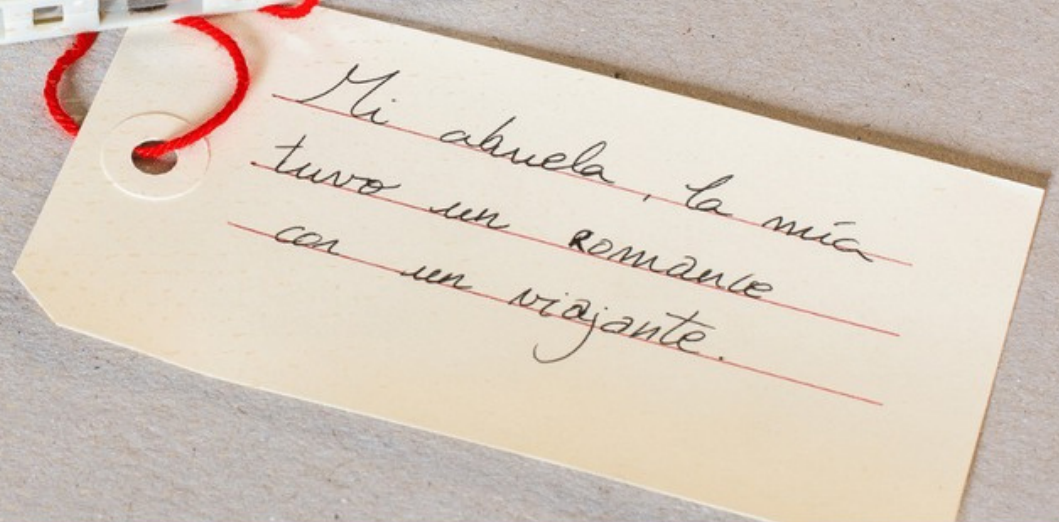 Mi abuela, la mía
tuvo un romance
con un viajante.